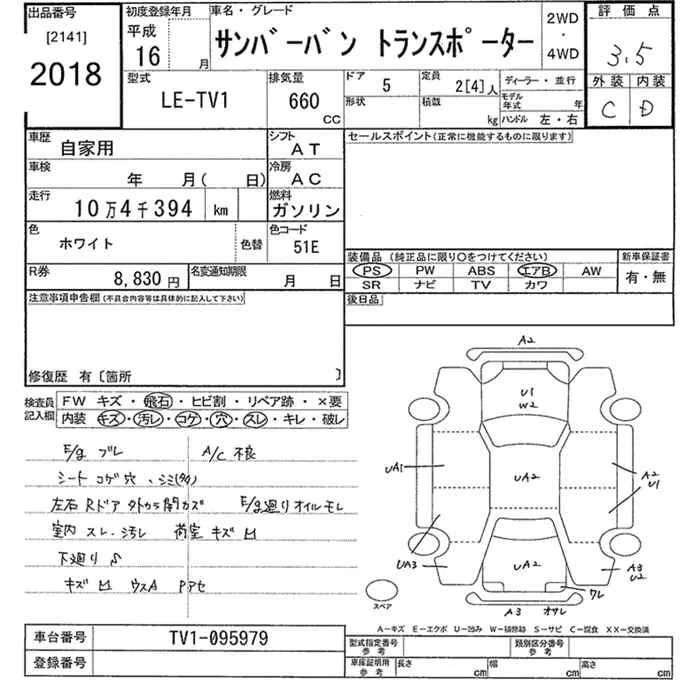 出品番号
[2141]
2018
初度登録年月
平成
16 月
車名・グレード
サンバーバン トランスポーター
2WD
・
4WD
評価点
3.5
外装 内装
C D
型式
LE-TV1
排気量
660
CC
ドア 5
形状
定員
2[4]人
積載
kg
ディーラー・並行
モデル
年式 年
ハンドル 左・右
車歴
自家用
シフト
AT
車検
年 月( 日)
冷房
AC
走行
10万4千394 km
燃料
ガソリン
色
ホワイト
色替
色コード
51E
R券
8,830 円
名変通知期限
月 日
セールスポイント(正常に機能するものに限ります)
装備品 (純正品に限り○をつけてください)
新車保証書
PS PW ABS エアB AW
SR ナビ TV カワ
有・無
後日品
注意事項申告欄(不具合内容等は具体的に記入して下さい)
修復歴 有〔箇所 〕
検査員
記入欄
FW キズ・飛石・ヒビ割・リペア跡・×要
内装 キズ・汚レ・コゲ・穴・スレ・キレ・破レ
E/g ブレ A/C 不良
シート コゲ穴、シミ
左右 Rドア 外から開カズ E/g廻りオイルモレ
室内 スレ・汚レ 荷室 キズ 凹
下廻り S
キズ 凹 ウスA Pアセ
A2
U1
W2
UA1
UA2
A2
U1
UA3
UA2
A3
U2
ワレ
A3 オサレ
スペア
A-キズ E-エクボ U-凹み W-補修跡 S-サビ C-腐食 XX-交換済
車台番号
TV1-095979
登録番号
型式指定番号
参考
類別区分番号
参考
車庫証明用
参考
長さ cm
幅 cm
高さ cm